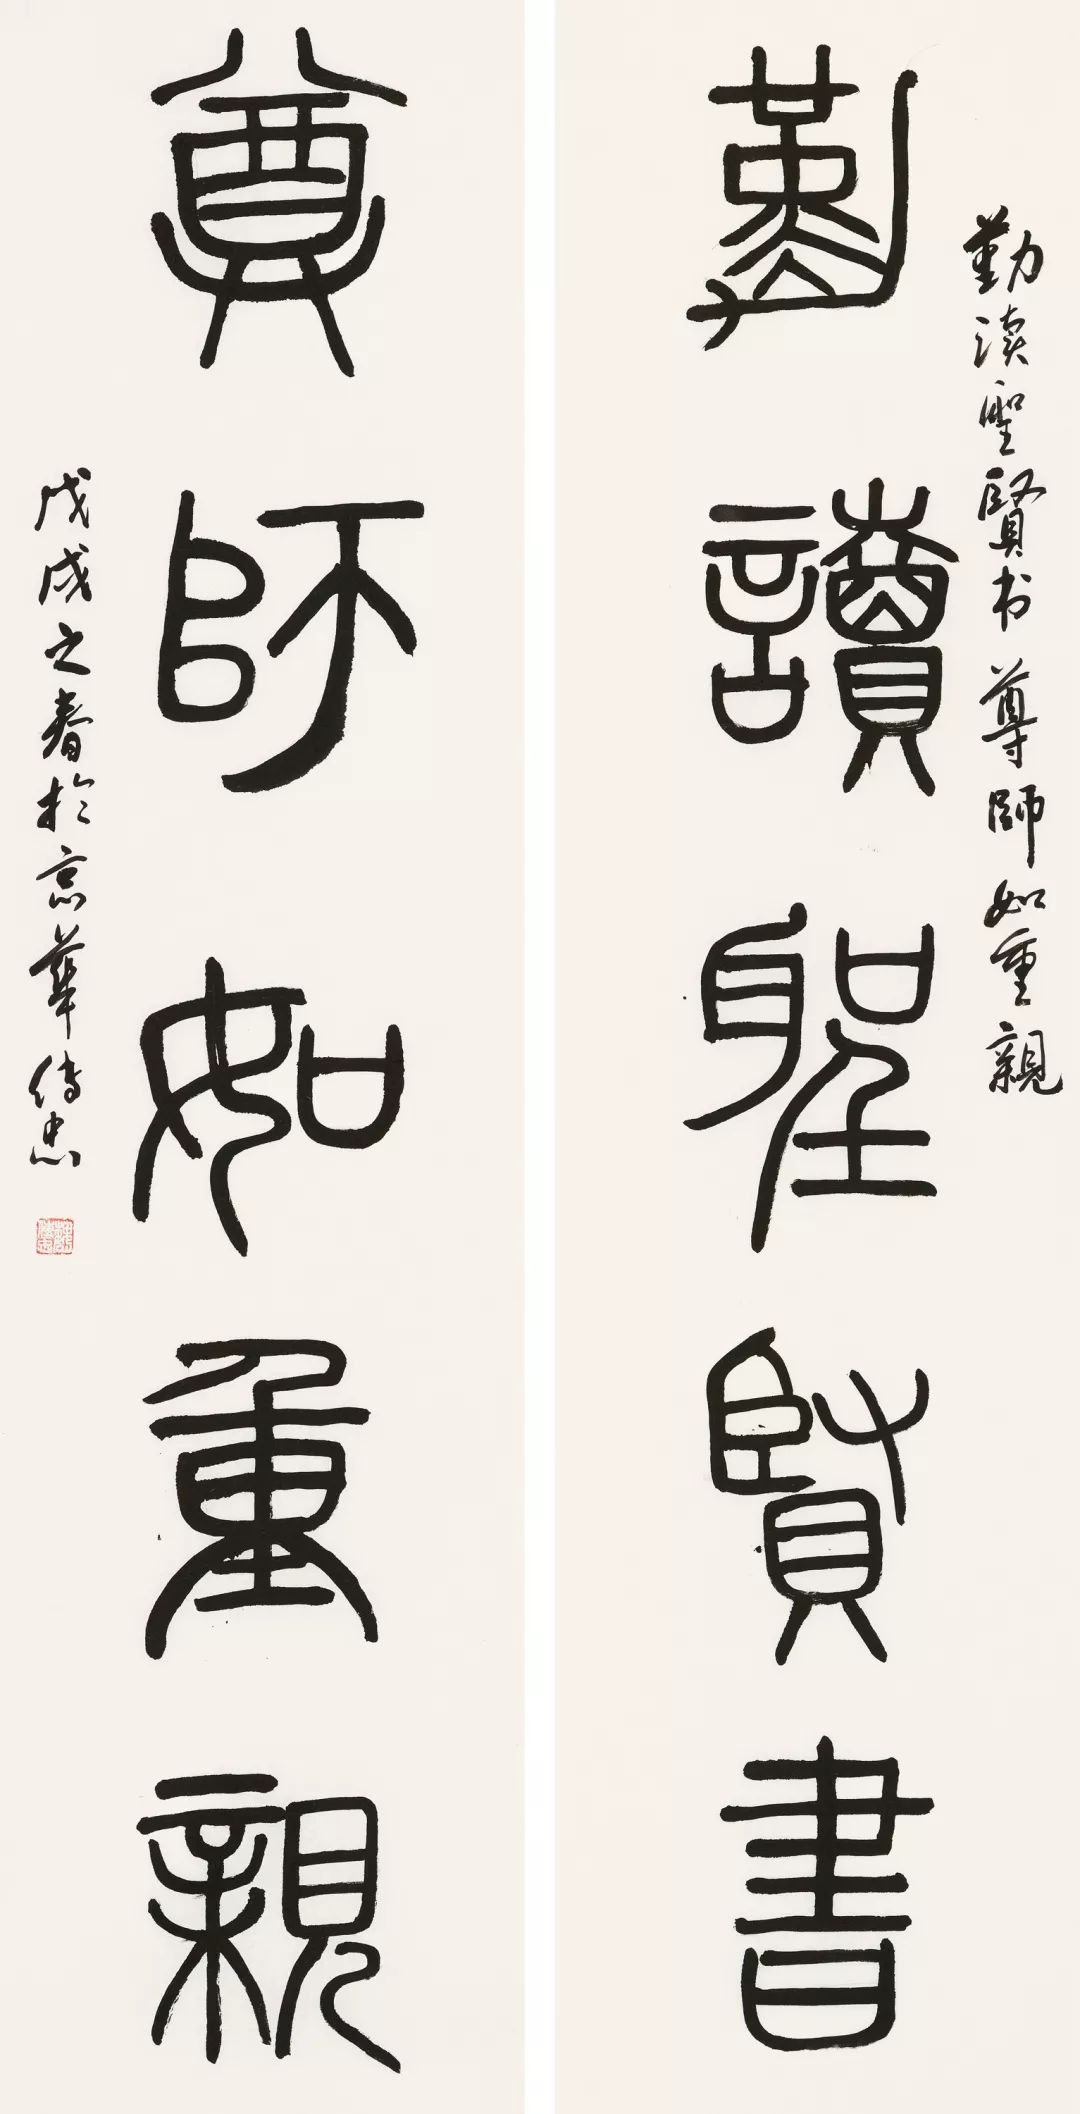 勤讀聖賢書
勤读聖賢书尊師如重親
尊師如重親
戊戌之春於京華傳忠